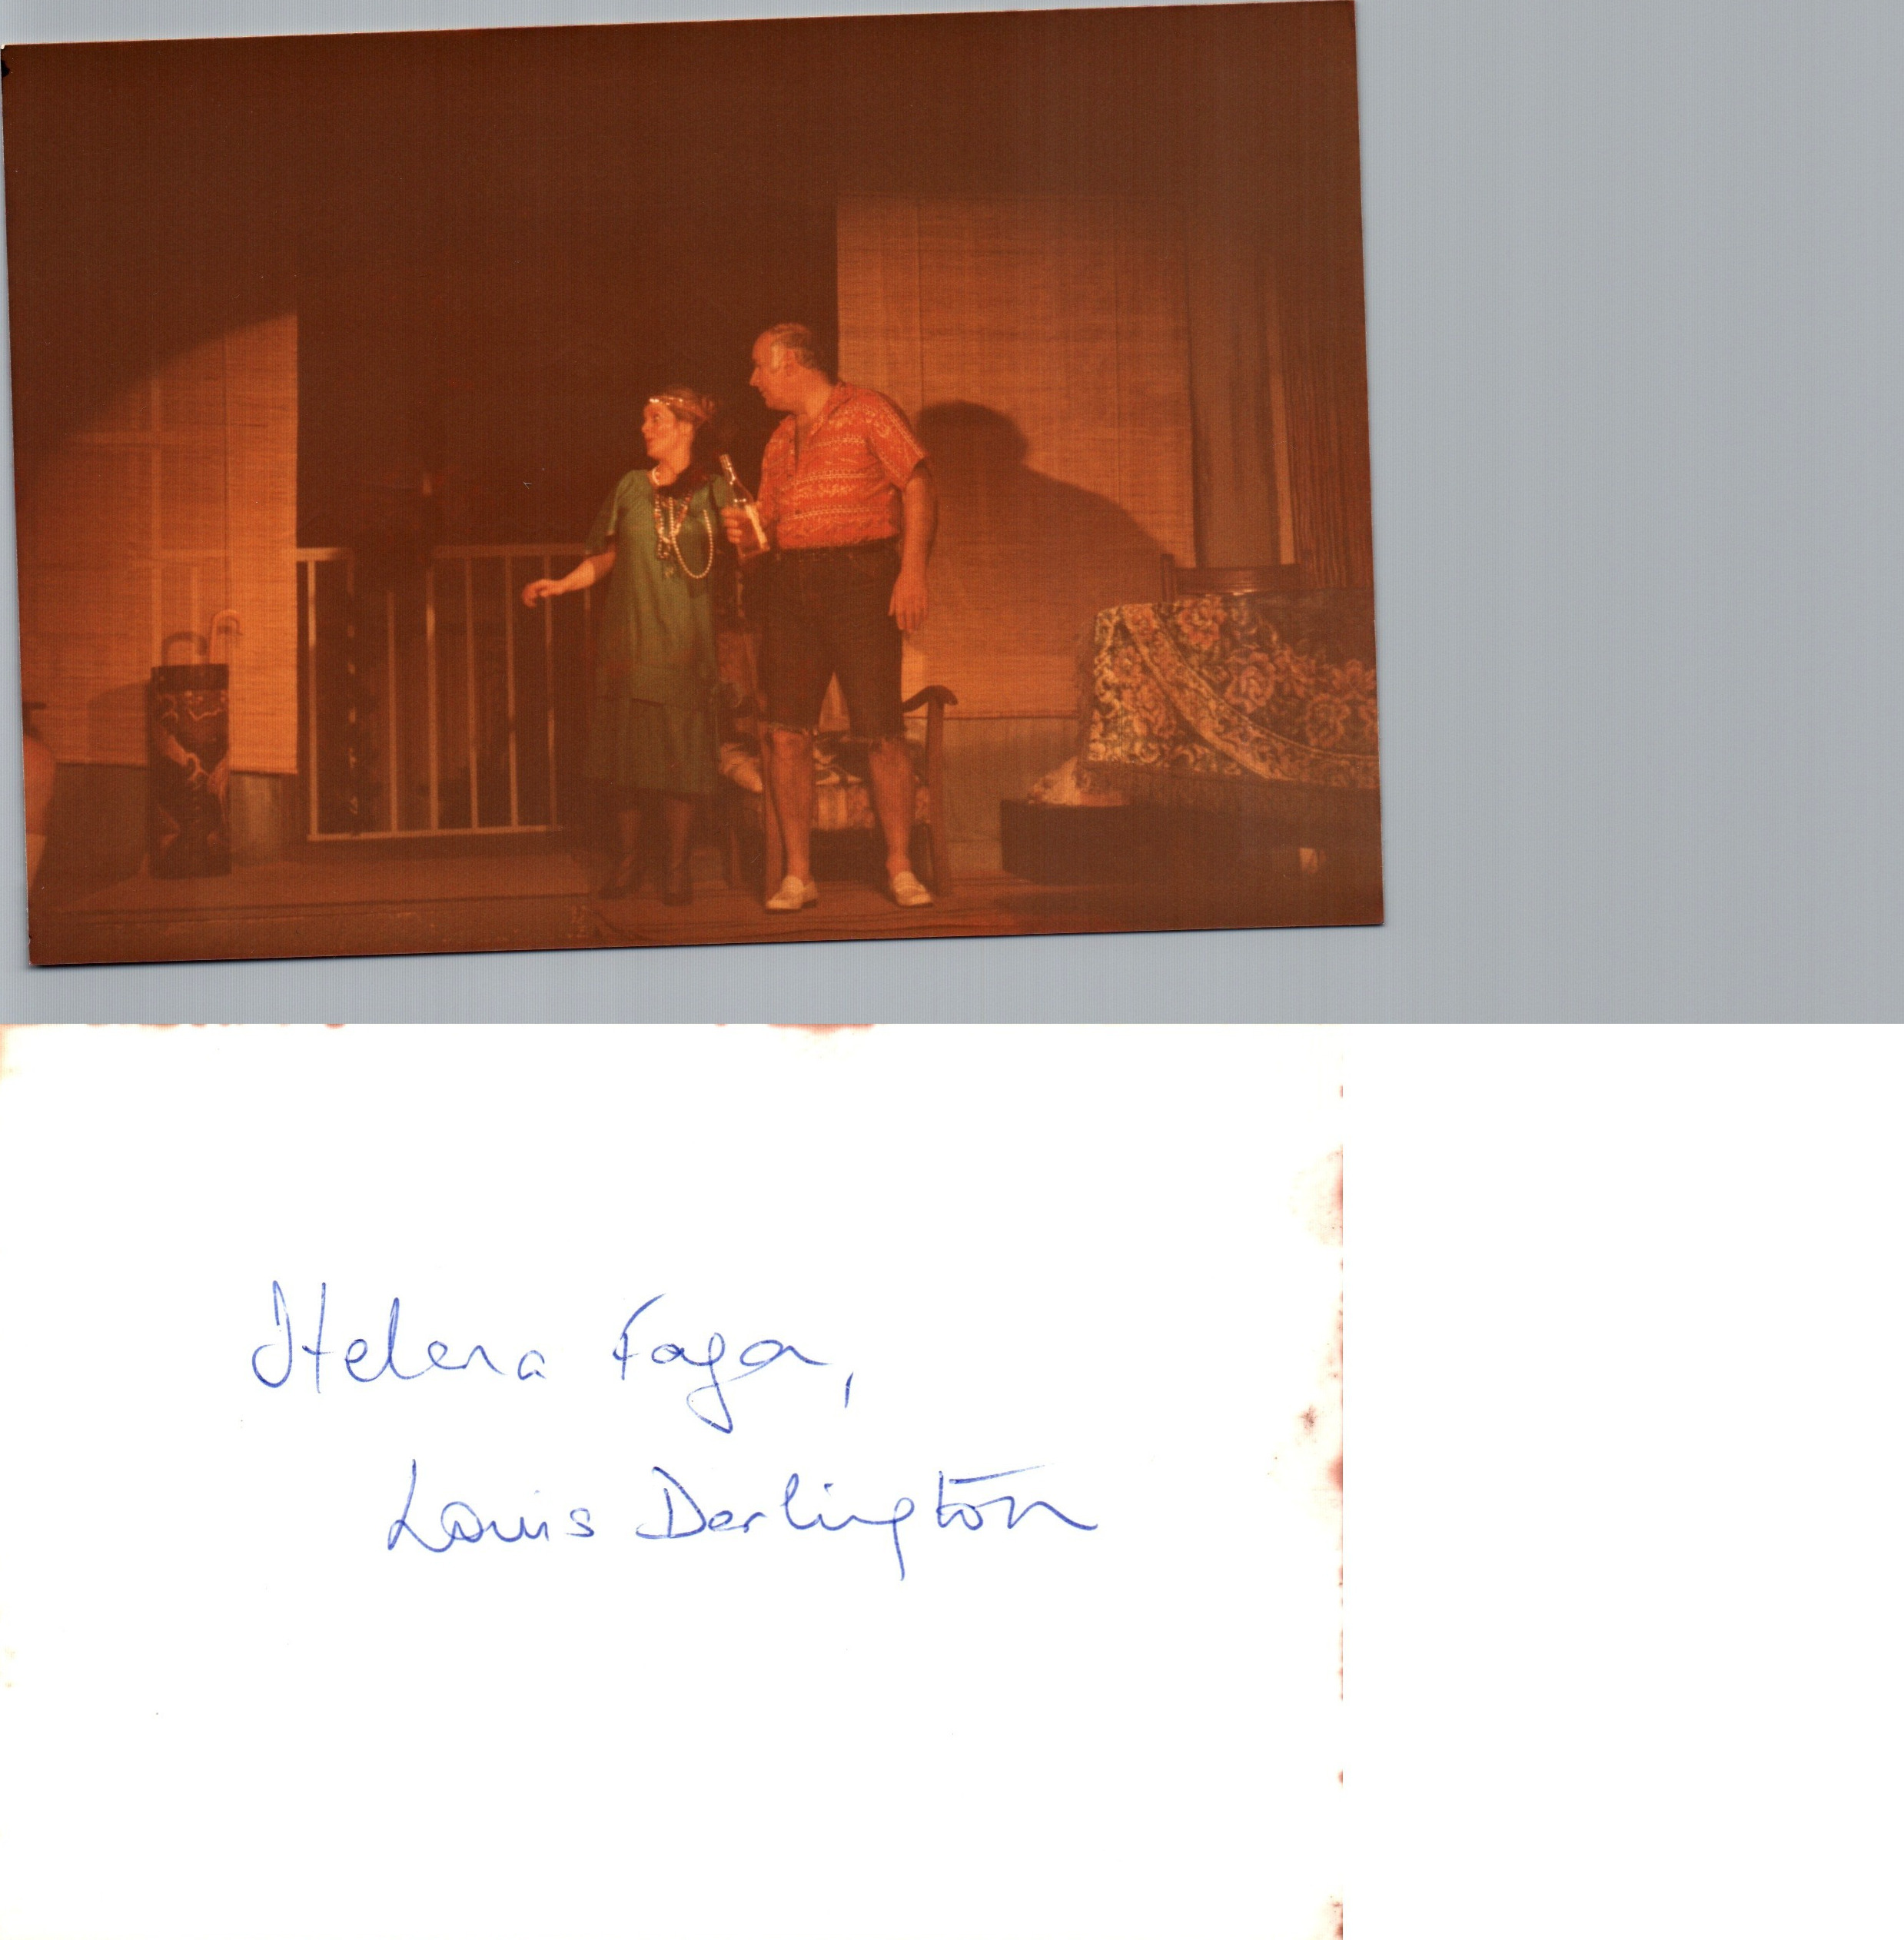 Helena Fagan,
Louis Darlington